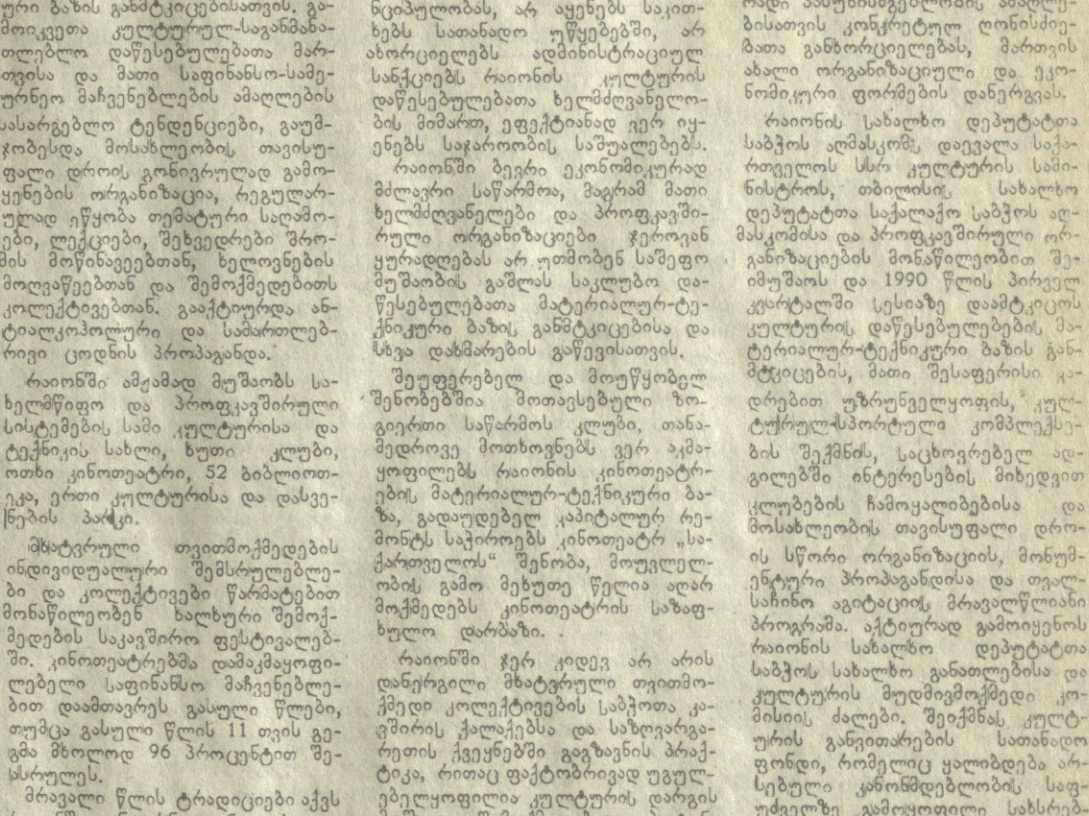 ური ბაზის განმტკიცებისათვის. გა-
მოიკვეთა კულტურულ-საგანმანა-
თლებლო დაწესებულებათა მარ-
თვისა და მათი საფინანსო-სამე-
ურნეო მაჩვენებლების ამაღლების
სასარგებლო ტენდენციები, გაუმ-
ჯობესდა მოსახლეობის თავისუ-
ფალი დროის გონივრულად გამო-
ყენების ორგანიზაცია, რეგულარ-
ულად ეწყობა თემატური საღამო-
ები, ლექციები, შეხვედრები შრო-
მის მოწინავეებთან, ხელოვნების
მოღვაწეებთან და შემოქმედებითს
კოლექტივებთან. გააქტიურდა ან-
ტიალკოჰოლური და სამართლებ-
რივი ცოდნის პროპაგანდა.
რაიონში ამჟამად მუშაობს სა-
ხელმწიფო და პროფკავშირული
სისტემების სამი კულტურისა და
ტექნიკის სახლი, ხუთი კლუბი,
ოთხი კინოთეატრი, 52 ბიბლიოთ-
ეკა, ერთი კულტურისა და დასვე-
ნების პარკი.
მხატვრული თვითმოქმედების
ინდივიდუალური შემსრულებლე-
ბი და კოლექტივები წარმატებით
მონაწილეობენ ხალხური შემოქ-
მედების საკავშირო ფესტივალებ-
ში. კინოთეატრებმა დამაკმაყოფი-
ლებელი საფინანსო მაჩვენებლე-
ბით დაამთავრეს გასული წლები,
თუმცა გასული წლის 11 თვის გე-
გმა მხოლოდ 96 პროცენტით შე-
ასრულეს.
მრავალი წლის ტრადიციები აქვს
ნციპულობას, არ აყენებს საკით-
ხებს სათანადო უწყებებში, არ
ახორციელებს ადმინისტრაციულ
სანქციებს რაიონის კულტურის
დაწესებულებათა ხელმძღვანელო-
ბის მიმართ, ეფექტიანად ვერ იყ-
ენებს საჯაროობის საშუალებებს.
რაიონში ბევრი ეკონომიკურად
მძლავრი საწარმოა, მაგრამ მათი
ხელმძღვანელები და პროფკავში-
რული ორგანიზაციები ჯეროვან
ყურადღებას არ უთმობენ საშეფო
მუშაობის გაშლას საკლუბო და-
წესებულებათა მატერიალურ-ტე-
ქნიკური ბაზის განმტკიცებისა და
სხვა დახმარების გაწევისათვის.
შეუფერებელ და მოუწყობელ
შენობებშია მოთავსებული ზო-
გიერთი საწარმოს კლუბი, თანა-
მედროვე მოთხოვნებს ვერ აკმა-
ყოფილებს რაიონის კინოთეატრ-
ების მატერიალურ-ტექნიკური ბა-
ზა, გადაუდებელ კაპიტალურ რე-
მონტს საჭიროებს კინოთეატრ „სა-
ქართველოს“ შენობა, მოუვლელ-
ობის გამო მეხუთე წელია აღარ
მოქმედებს კინოთეატრის საზაფ-
ხულო დარბაზი.
რაიონში ჯერ კიდევ არ არის
დანერგილი მხატვრული თვითმო-
ქმედი კოლექტივების საბჭოთა კა-
ვშირის ქალაქებსა და საზღვარგა-
რეთის ქვეყნებში გაგზავნის პრაქ-
ტიკა, რითაც ფაქტობრივად უგულ-
ებელყოფილია კულტურის დარგის
ბისათვის კონკრეტულ ღონისძიე-
ბათა განხორციელებას, მართვის
ახალი ორგანიზაციული და ეკო-
ნომიკური ფორმების დანერგვას.
რაიონის სახალხო დეპუტატთა
საბჭოს აღმასკომს დაევალა საქა-
რთველოს სსრ კულტურის სამი-
ნისტროს, თბილისის სახალხო
დეპუტატთა საქალაქო საბჭოს აღ-
მასკომისა და პროფკავშირული ორ-
განიზაციების მონაწილეობით შე-
იმუშაოს და 1990 წლის პირველ
კვარტალში სესიაზე დაამტკიცოს
კულტურის დაწესებულებების მა-
ტერიალურ-ტექნიკური ბაზის გან-
მტკიცების, მათი შესაფერისი კა-
დრებით უზრუნველყოფის, კულ-
ტურულ-სპორტული კომპლექსე-
ბის შექმნის, საცხოვრებელ ად-
გილებში ინტერესების მიხედვით
კლუბების ჩამოყალიბებისა და
მოსახლეობის თავისუფალი დრო-
ის სწორი ორგანიზაციის, მონუმ-
ენტური პროპაგანდისა და თვალ-
საჩინო აგიტაციის მრავალწლიანი
პროგრამა. აქტიურად გამოიყენოს
რაიონის სახალხო დეპუტატთა
საბჭოს სახალხო განათლებისა და
კულტურის მუდმივმოქმედი კო-
მისიის ძალები. შეიქმნას კულტ-
ურის განვითარების სათანადო
ფონდი, რომელიც ყალიბდება არ-
სებული კანონმდებლობის საფ-
უძველზე გამოყოფილი სახსრებ-